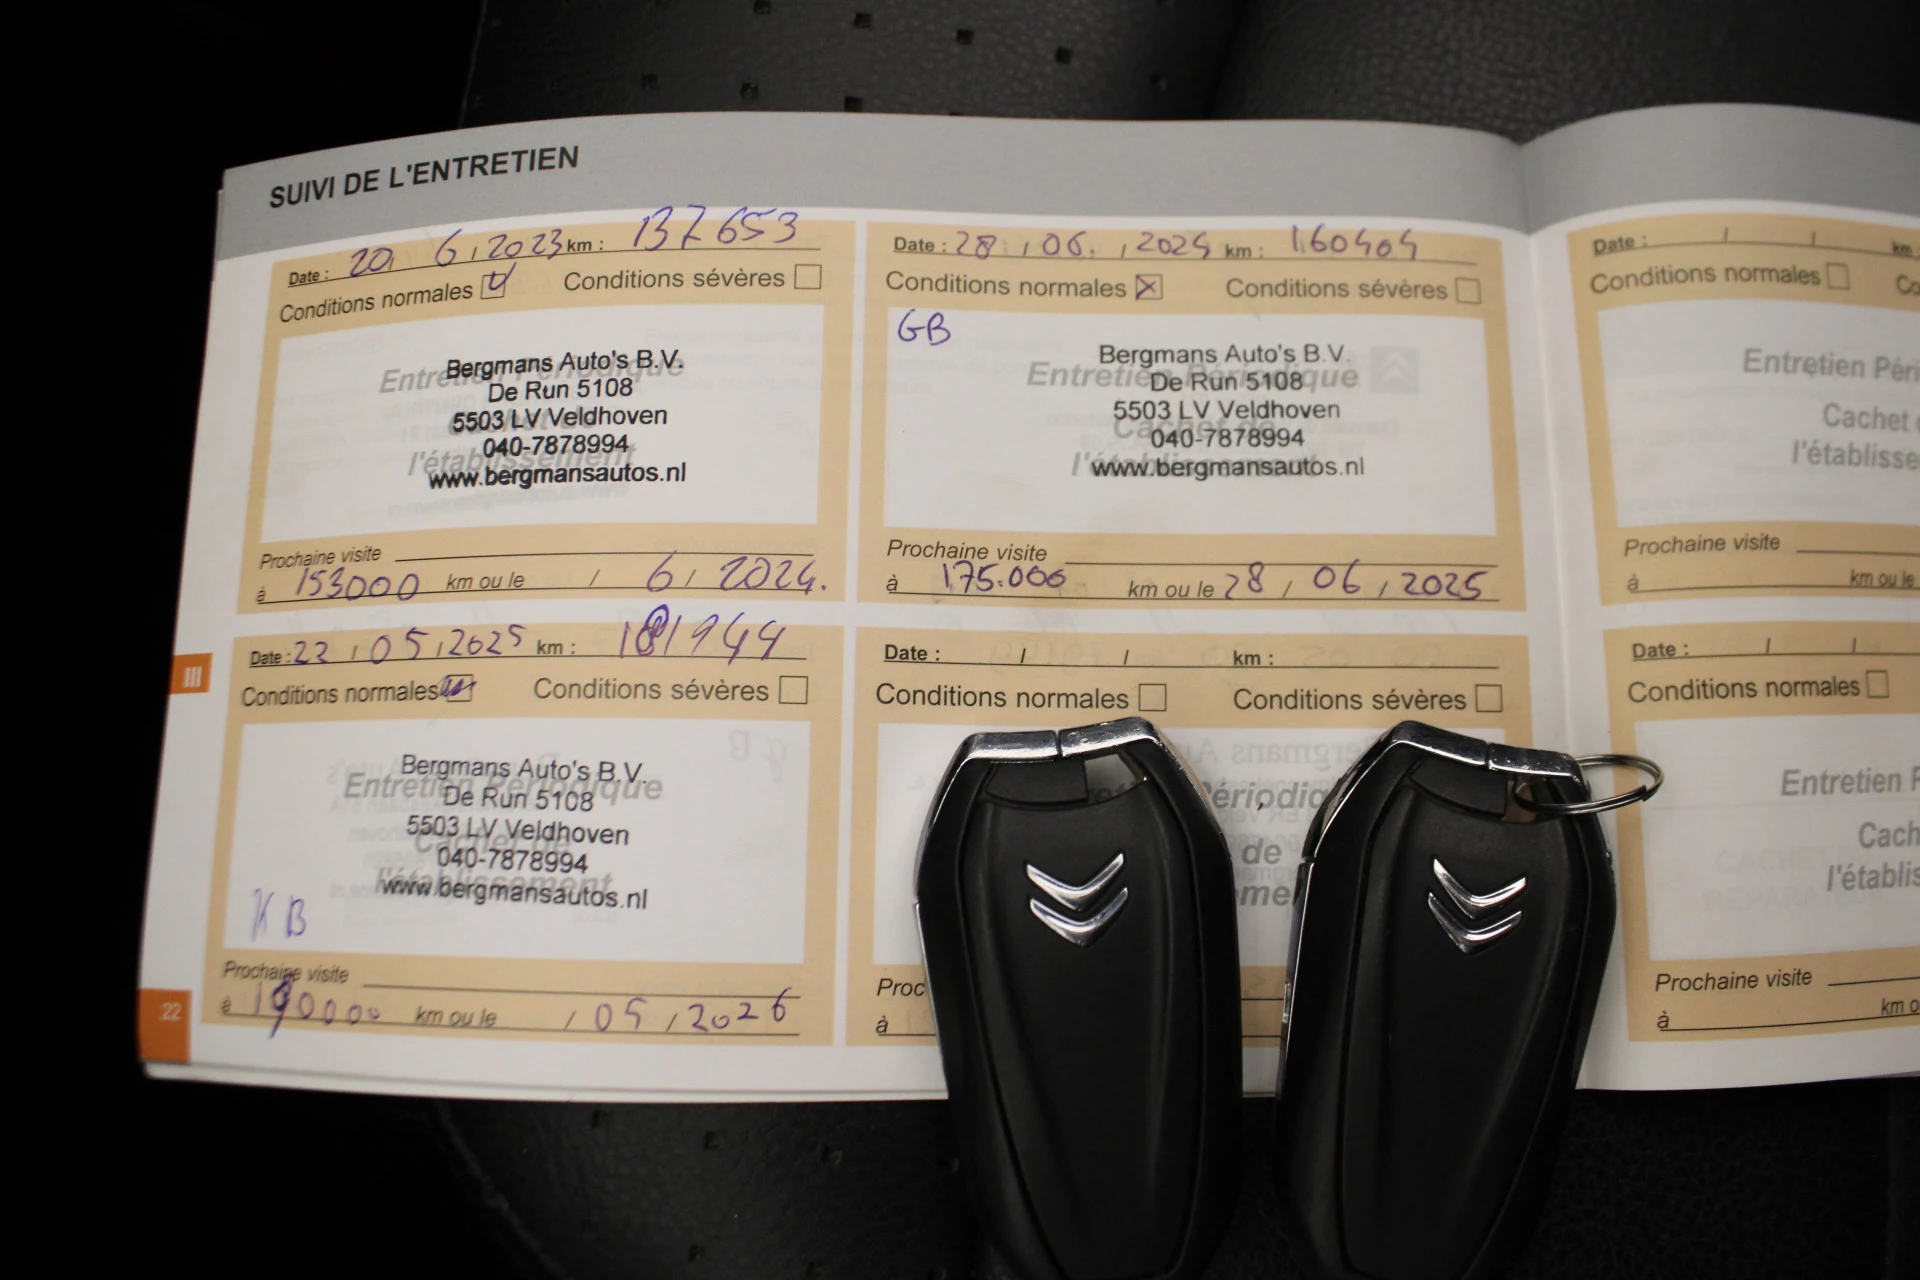 SUIVI DE L'ENTRETIEN
Date : 20, 6, 2023 km : 137653
Conditions normales Conditions sévères
Entretien Périodique
Cachet de
l'établissement
Bergmans Auto's B.V.
De Run 5108
5503 LV Veldhoven
040-7878994
www.bergmansautos.nl
Prochaine visite
à 153000 km ou le / 6 / 2024.
Date : 28 / 06. / 2024 km : 160404
Conditions normales Conditions sévères
GB
Entretien Périodique
Cachet de
l'établissement
Bergmans Auto's B.V.
De Run 5108
5503 LV Veldhoven
040-7878994
www.bergmansautos.nl
Prochaine visite
à 175.000 km ou le 28 / 06 / 2025
Date : 22 / 05 / 2025 km : 181944
Conditions normales Conditions sévères
Entretien Périodique
Cachet de
l'établissement
Bergmans Auto's B.V.
De Run 5108
5503 LV Veldhoven
040-7878994
www.bergmansautos.nl
KB
Prochaine visite
à 190000 km ou le / 05 / 2026
Date : / / km :
Conditions normales Conditions sévères
de
Proc
à
Date : / / km
Conditions normales Co
Entretien Péri
Cachet
l'établisse
Prochaine visite
à km ou le
Date : / /
Conditions normales
Entretien P
Cach
l'établis
Prochaine visite
à km o
III
22